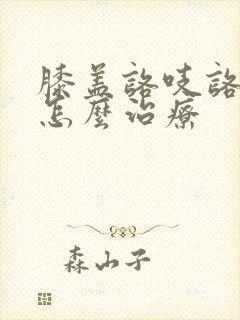 膝盖詻吱詻
怎麼治療
森山子